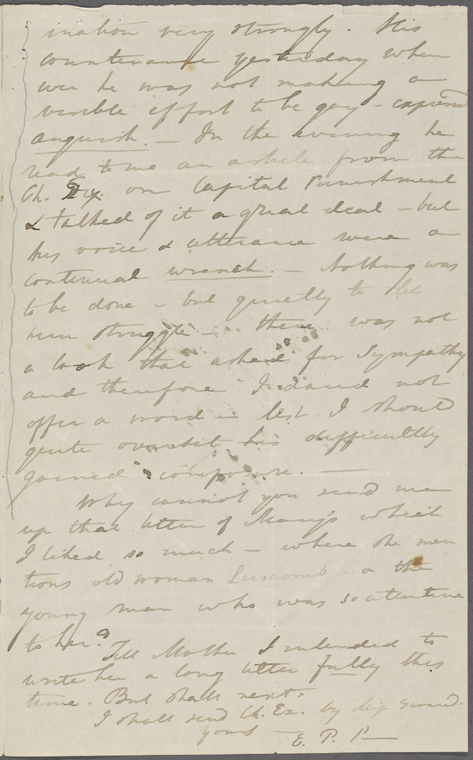 mation very strongly. His
countenance yesterday when
ever he was not making a
visible effort to be gay – expressed
anguish. – In the evening he
read to me an article from the
Ch. Ex. on Capital Punishment
& talked of it a great deal – but
his voice & utterance were a
continual wrench. – Nothing was
to be done – but quietly to let
him struggle – there was not
a look that asked for Sympathy
and therefore I dared not
offer a word – lest I should
quite overset his difficultly
gained composure. –
Why cannot you send me
up that letter of Mary's which
I liked so much – where she men
tions old woman Luscomb – & the
young man who was so attentive
to her?
Tell Mother I intended to
write her a long letter fully this
time. But shall next.
I shall send Ch. Ex. by
yours –
E. P. P –